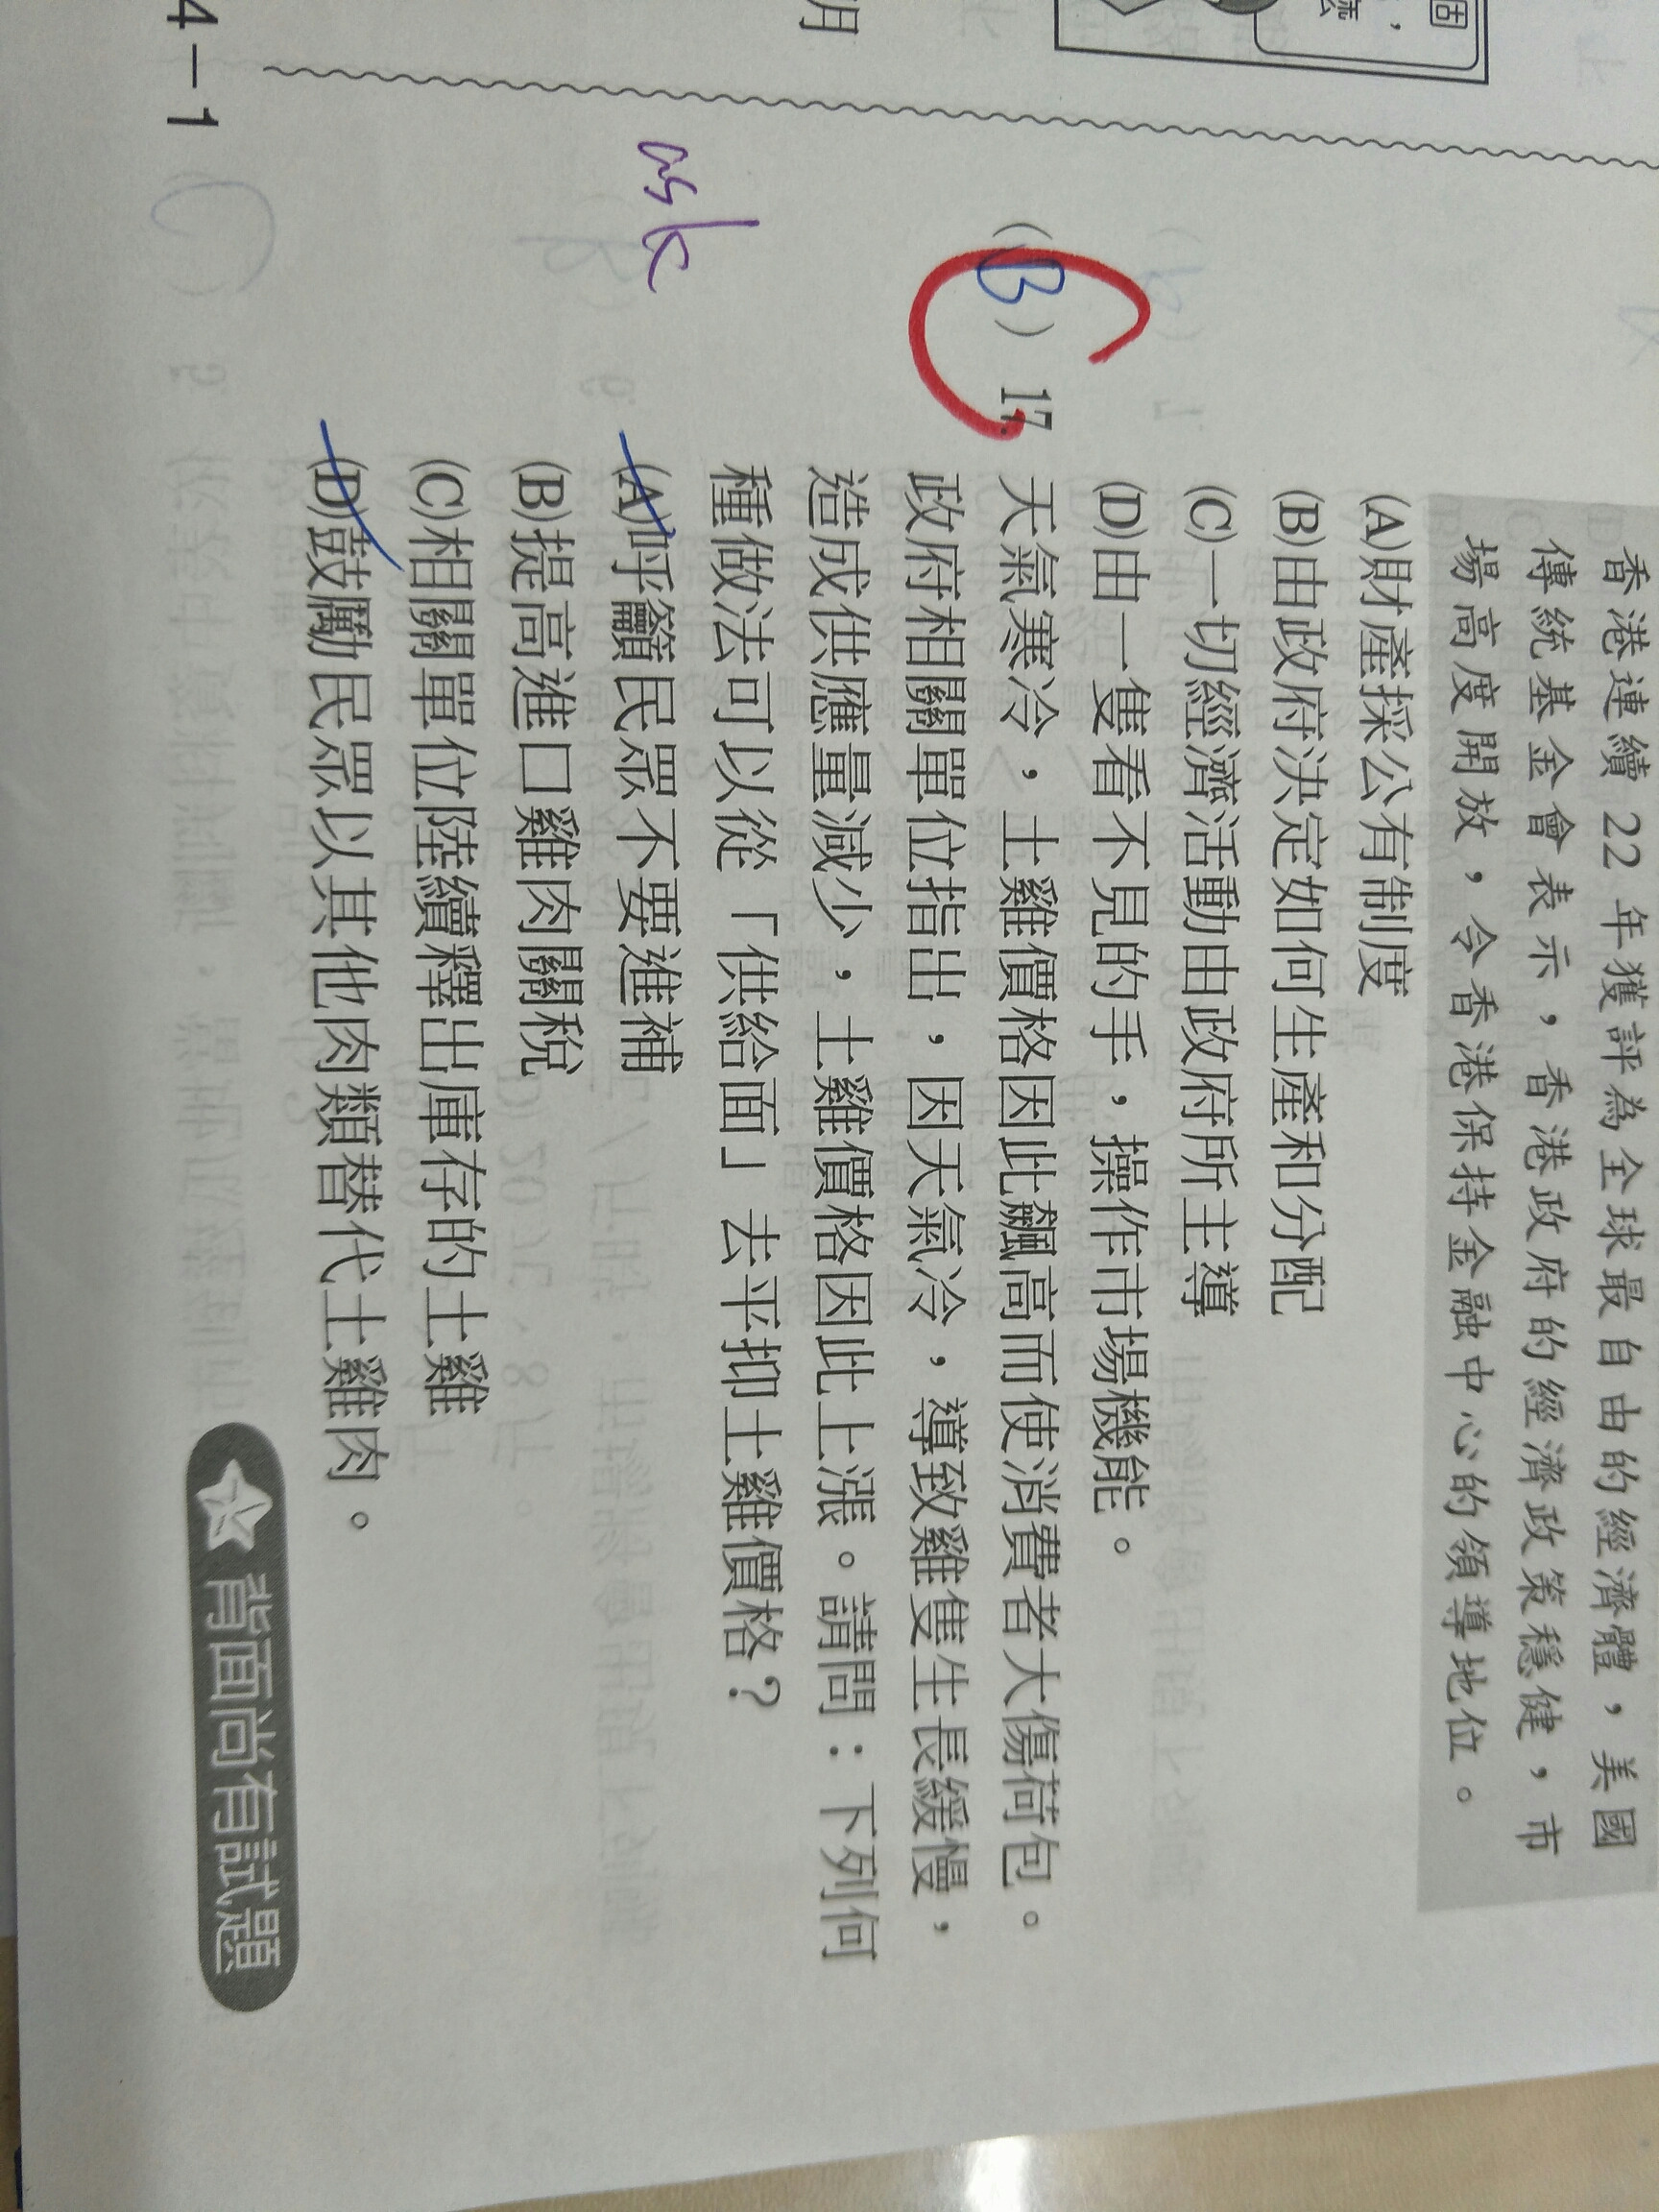 固
，
月
香港連續 22 年獲評為全球最自由的經濟體，美國
傳統基金會表示，香港政府的經濟政策穩健，市
場高度開放，令香港保持金融中心的領導地位。
(A)財產採公有制度
(B)由政府決定如何生產和分配
(C)一切經濟活動由政府所主導
(D)由一隻看不見的手，操作市場機能。
(B) 17. 天氣寒冷，土雞價格因此飆高而使消費者大傷荷包。
政府相關單位指出，因天氣冷，導致雞隻生長緩慢，
造成供應量減少，土雞價格因此上漲。請問：下列何
種做法可以從「供給面」去平抑土雞價格？
(A)呼籲民眾不要進補
(B)提高進口雞肉關稅
(C)相關單位陸續釋出庫存的土雞
(D)鼓勵民眾以其他肉類替代土雞肉。
C
ask
4－1
背面尚有試題